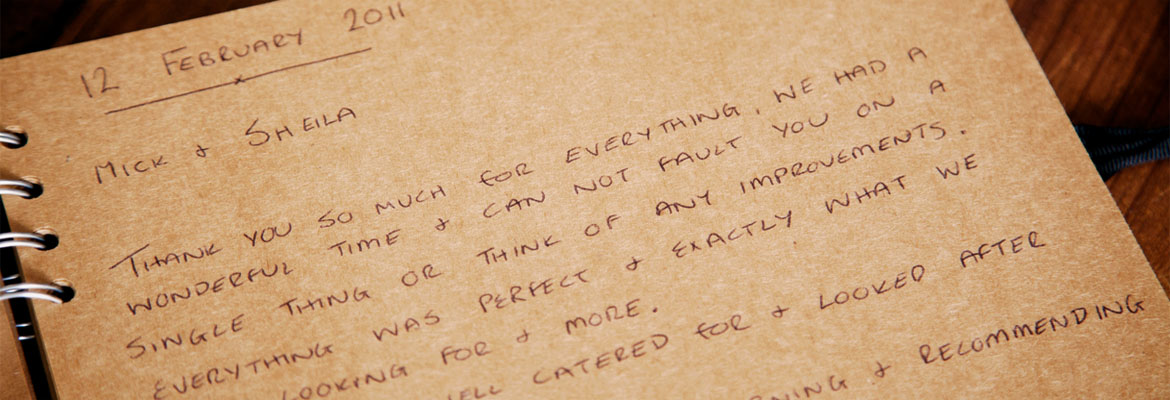 12 FEBRUARY 2011
MICK & SHEILA
THANK YOU SO MUCH FOR EVERYTHING. WE HAD A
WONDERFUL TIME & CAN NOT FAULT YOU ON A
SINGLE THING OR THINK OF ANY IMPROVEMENTS.
EVERYTHING WAS PERFECT & EXACTLY WHAT WE
LOOKING FOR & MORE.
CATERED FOR & LOOKED AFTER
& RECOMMENDING